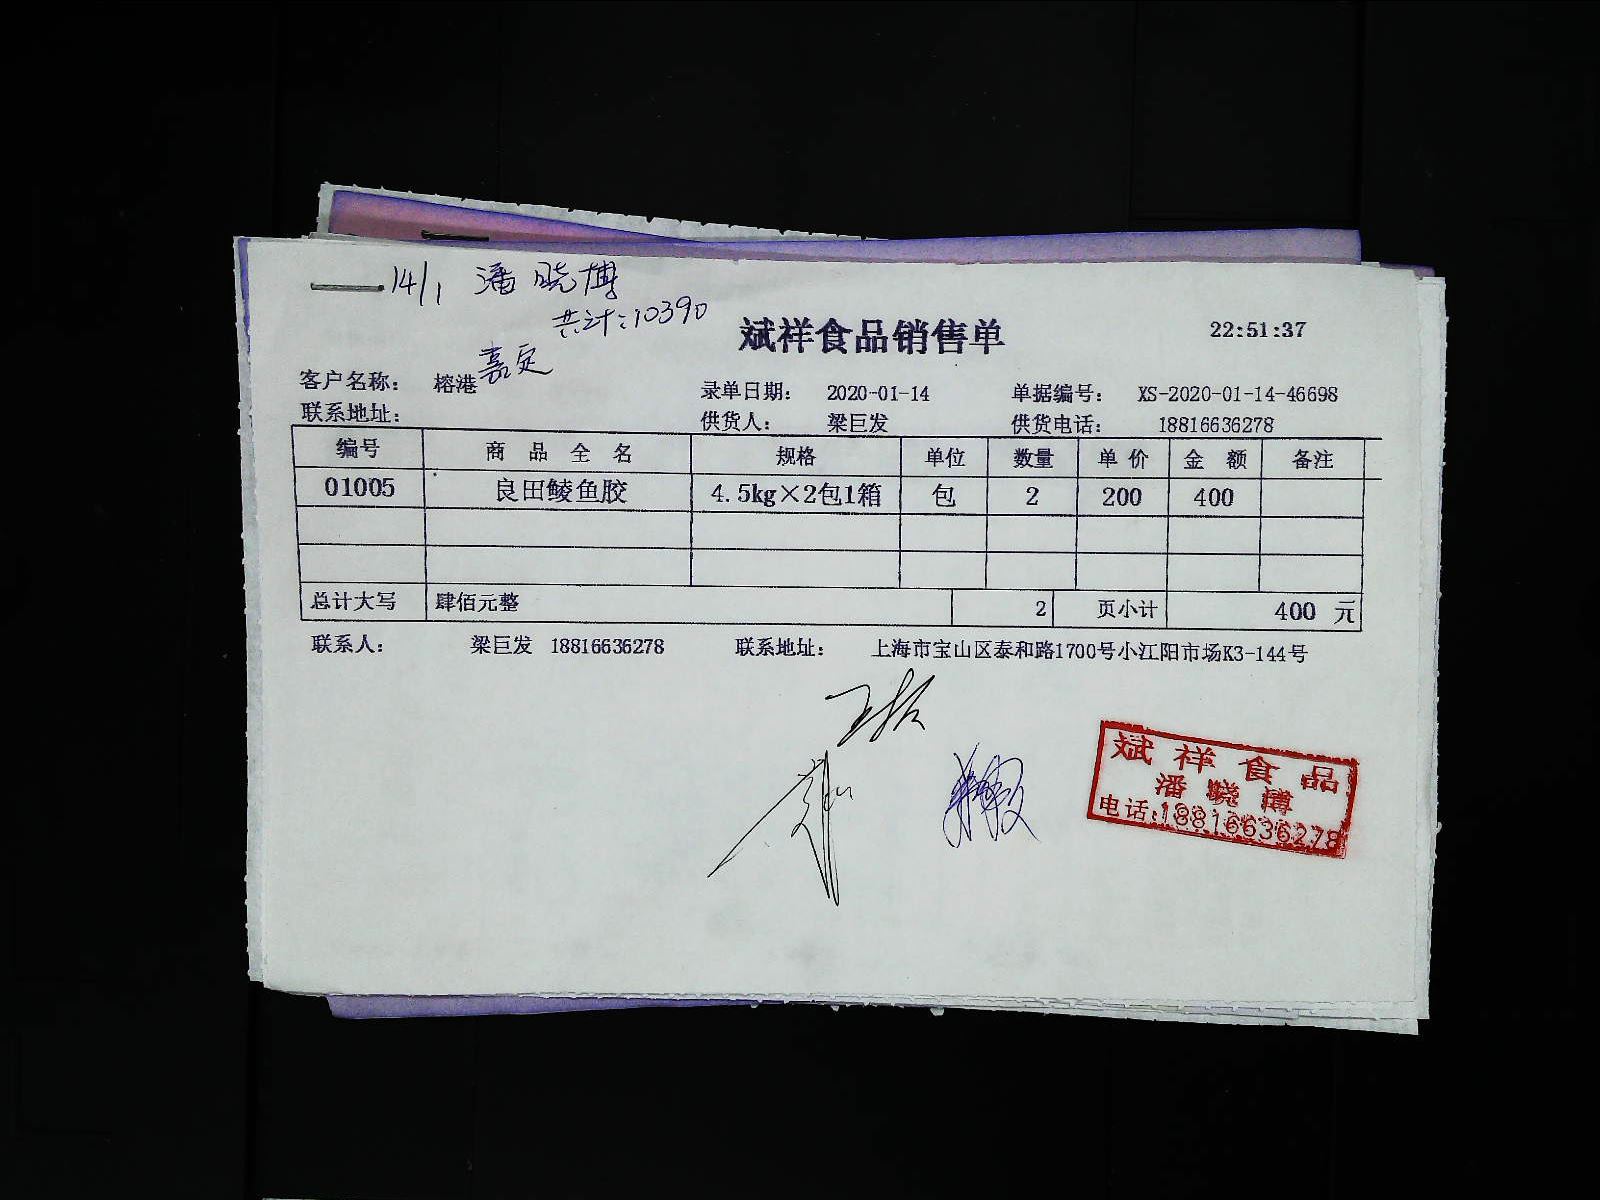 14/1 潘晓博
共计:10390
斌祥食品销售单 22:51:37
客户名称: 榕港 嘉定 录单日期: 2020-01-14 单据编号: XS-2020-01-14-46698
联系地址: 供货人: 梁巨发 供货电话: 18816636278
编号 商品全名 规格 单位 数量 单价 金额 备注
01005 良田鲮鱼胶 4.5kg×2包1箱 包 2 200 400
总计大写 肆佰元整 2 页小计 400 元
联系人: 梁巨发 18816636278 联系地址: 上海市宝山区泰和路1700号小江阳市场K3-144号
斌祥食品
潘晓博
电话:18816636278